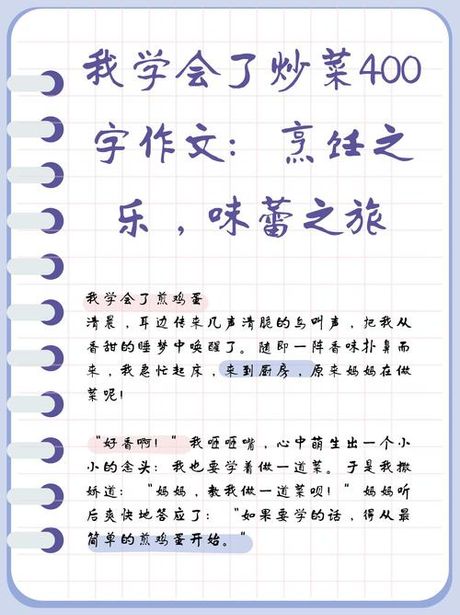 我学会了炒菜400
字作文：烹饪之
乐，味蕾之旅
我学会了煎鸡蛋
清晨，耳边传来几声清脆的鸟叫声，把我从
香甜的睡梦中唤醒了。随即一阵香味扑鼻而
来，我急忙起床，来到厨房，原来妈妈在做
菜呢！
“好香啊！”我咂咂嘴，心中萌生出一个小
小的念头：我也要学着做一道菜。于是我撒
娇道：“妈妈，教我做一道菜呗！”妈妈听
后爽快地答应了：“如果要学的话，得从最
简单的煎鸡蛋开始。”